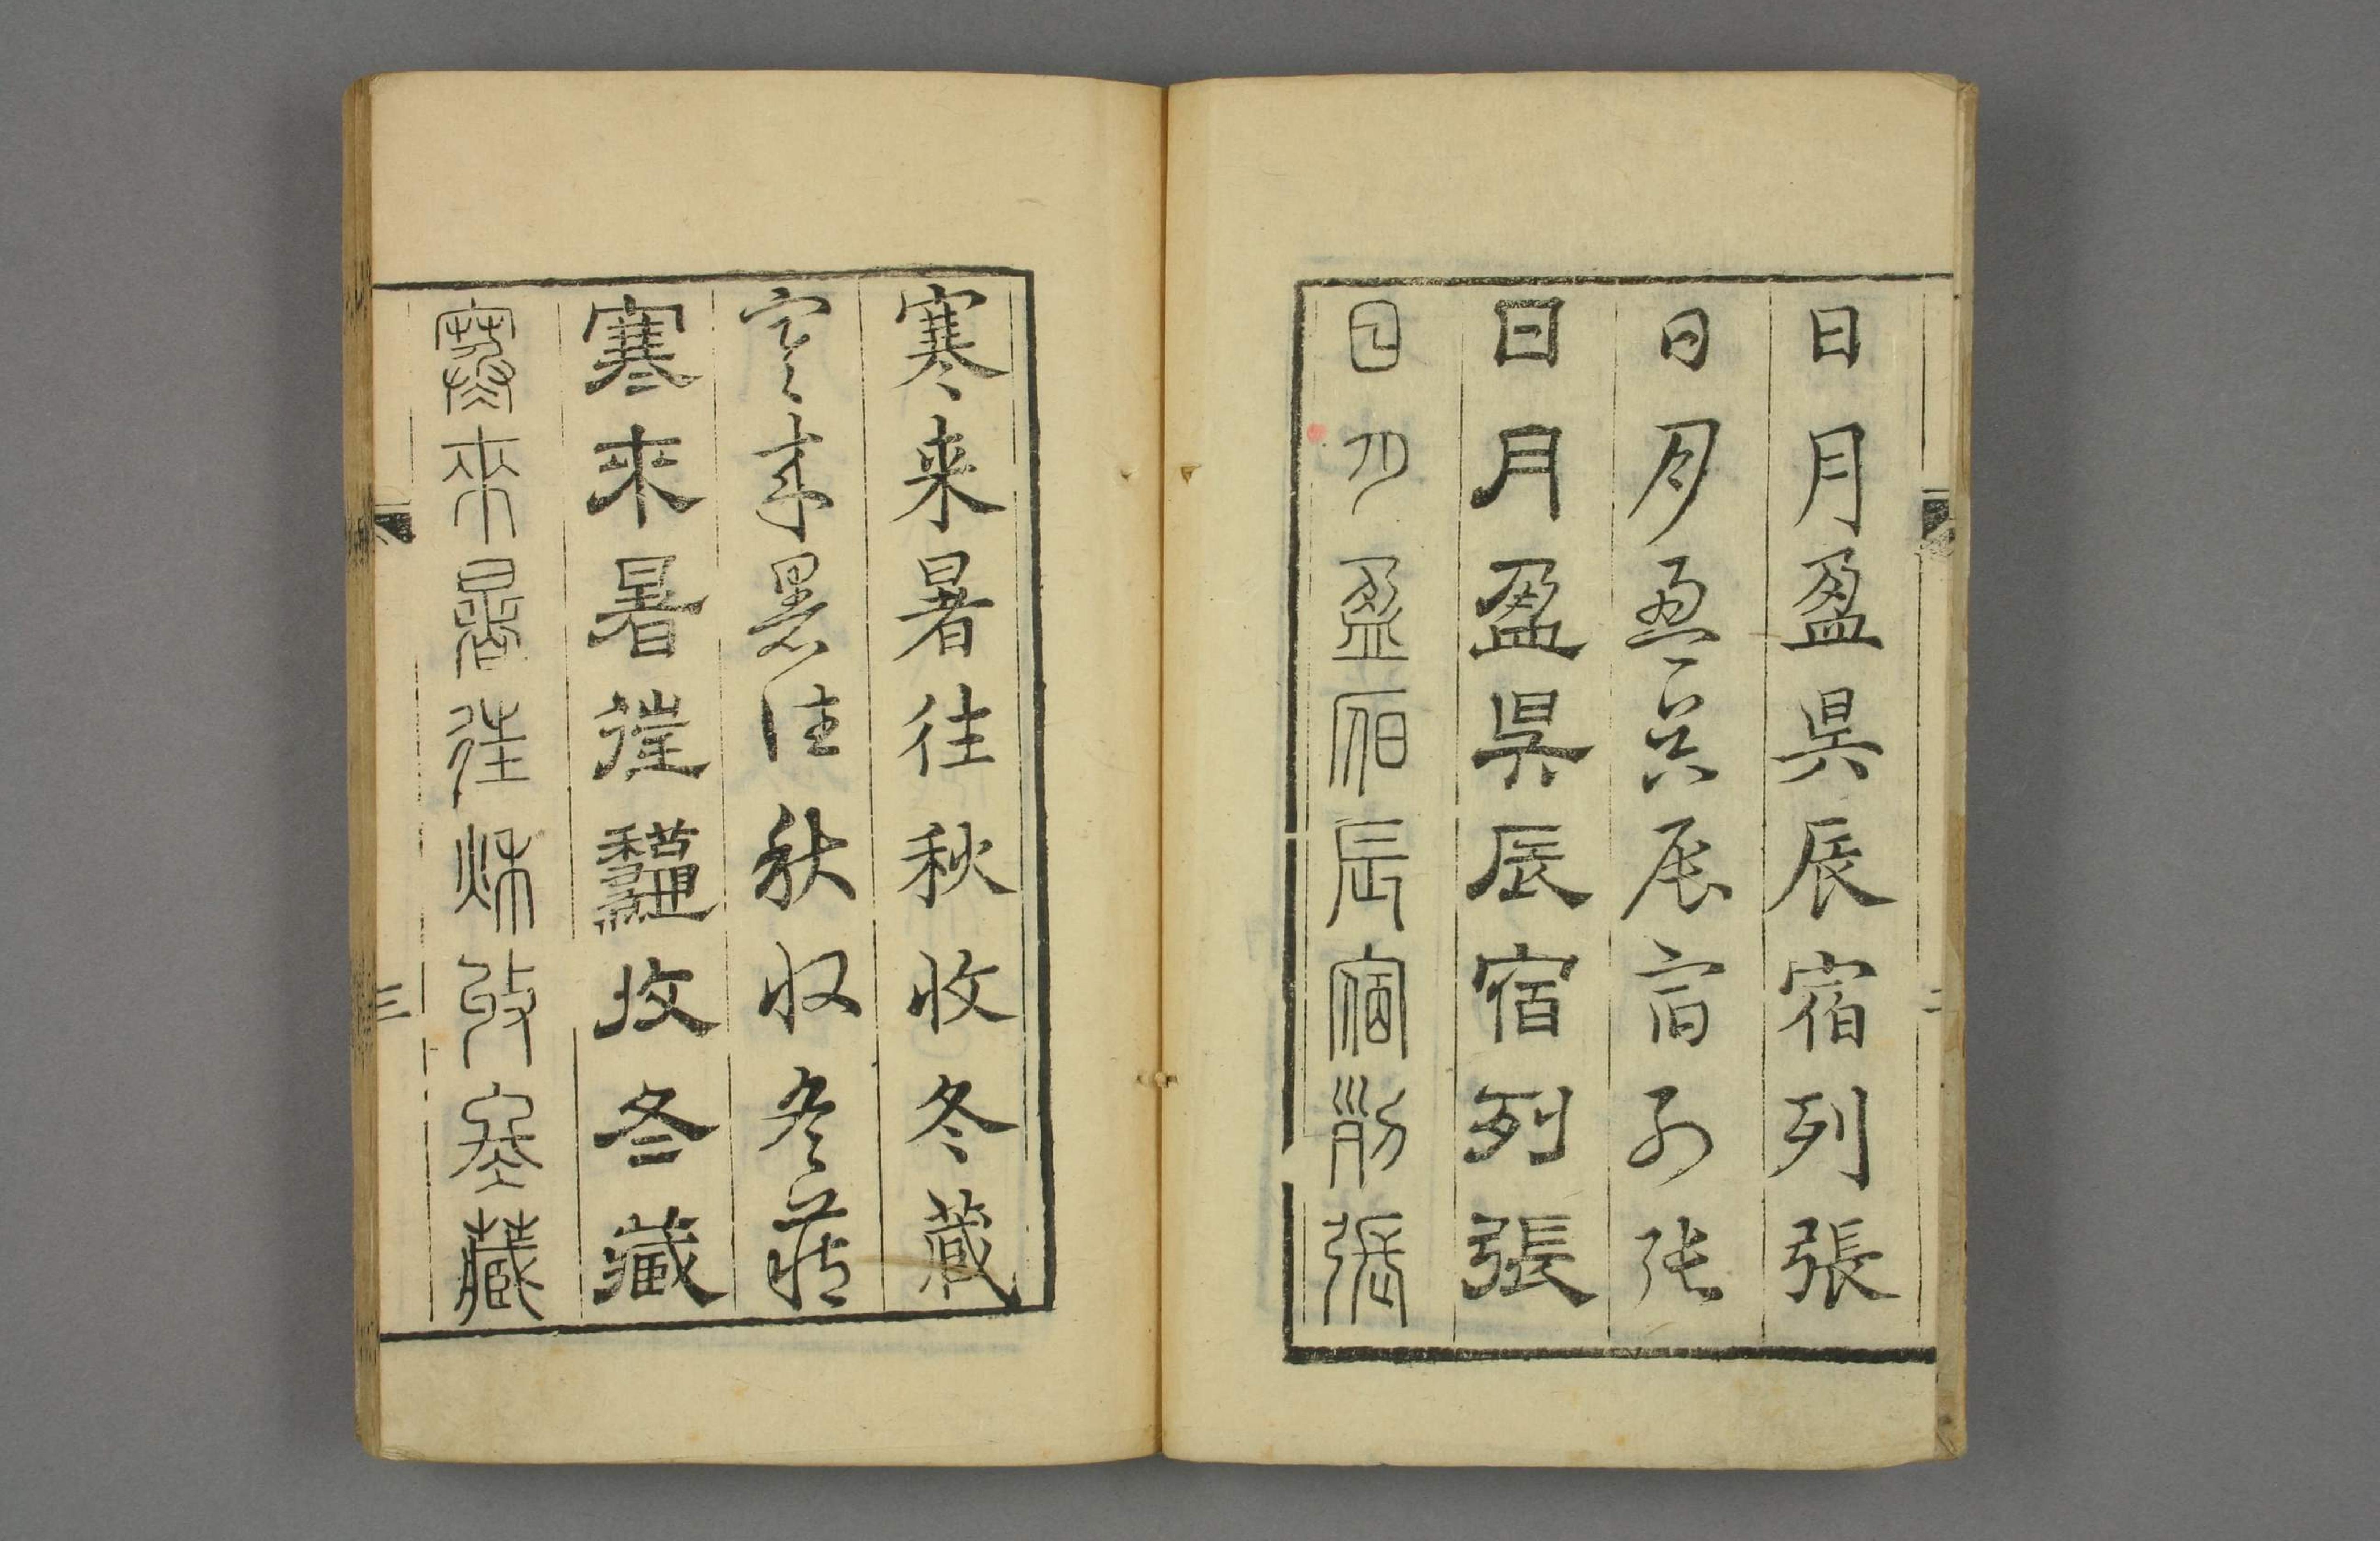 日月盈昃辰宿列張
日月盈昃辰宿列張
日月盈昃辰宿列張
日月盈昃辰宿列張
寒来暑往秋收冬藏
寒来暑往秋収冬藏
寒來暑徃龝收冬藏
寒來暑往秌收冬藏
三